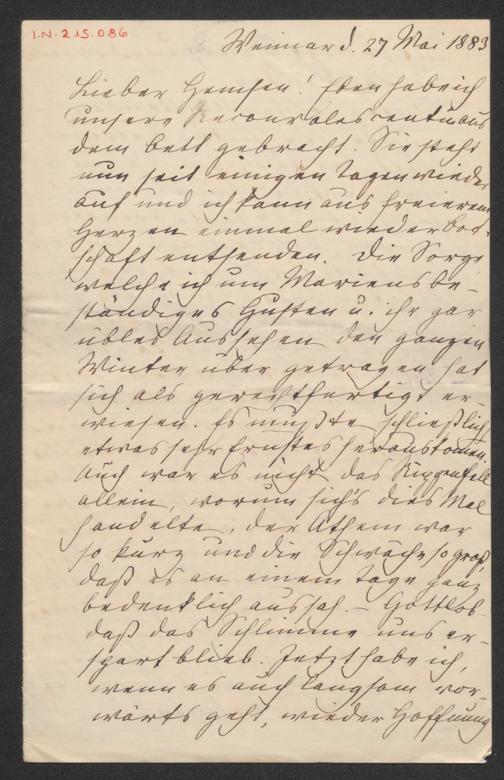 I.N. 215.086
Weimar d. 27 Mai 1883
Lieber Hemsen! Eben habe ich
unsere Reconvalescentin aus
dem Bett gebracht. Sie steht
nun seit einigen Tagen wieder
auf und ich kann aus freierem
Herzen einmal wieder Bot-
schaft entsenden. Die Sorge
welche ich um Mariens be-
ständiges Husten u. ihr gar
übles Aussehen den ganzen
Winter über getragen hat
sich als gerechtfertigt er-
wiesen. Es mußte schließlich
etwas sehr Ernstes herauskomen.
Auch war es nicht das Rippenfell
allein, worum sich's dies Mal
handelte, der Athem war
so kurz und die Schwäche so groß,
daß es an einem Tage ganz
bedenklich aussah. – Gottlob
daß das Schlimme uns er-
spart blieb. Jetzt habe ich,
wenn es auch langsam vor-
wärts geht, wieder Hoffnung